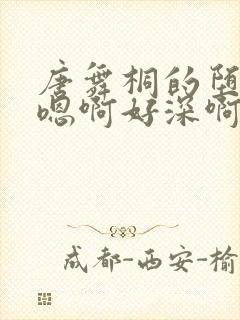 唐舞桐的堕
嗯啊好深啊
成都-西安-榆